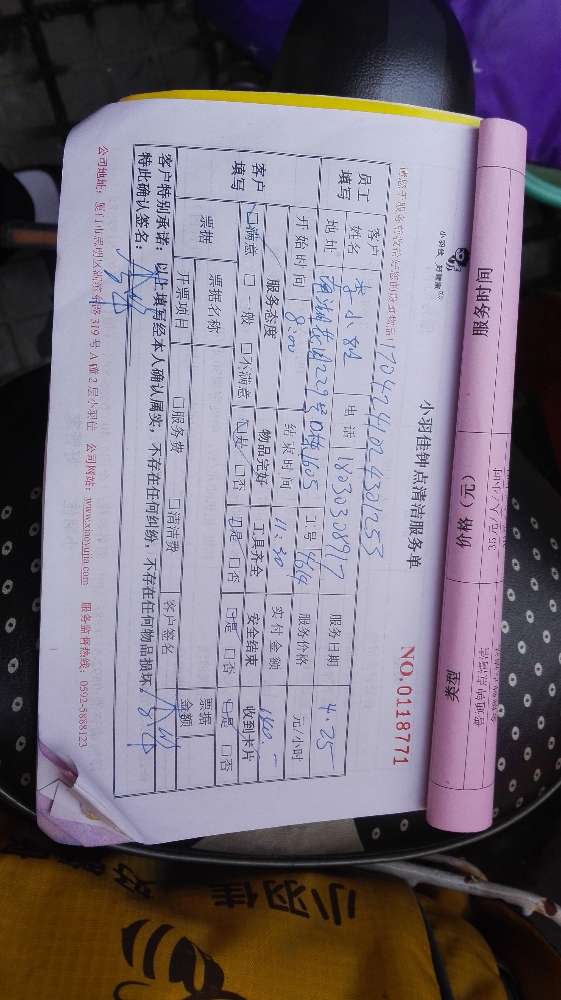 服务时间
价格（元）
类型
小羽佳 好管家
小羽佳钟点清洁服务单
NO.0118771
1704244024301253
员工填写
客户姓名
李小姐
电话
18030308917
服务日期
4.25
地址
229号
1605
工号
服务价格
元/小时
开始时间
8:00
结束时间
11:30
实付金额
140.-
客户填写
服务态度
物品完好
工具齐全
安全结束
收到卡片
满意 一般 不满意
是 否
是 否
是 否
是 否
票据
票据名称
票据金额
开票项目
服务费 清洁费
客户签名
客户特别承诺：以上填写经本人确认属实，不存在任何纠纷，不存在任何物品损坏。
特此确认签名：
319号A幢2层小羽佳 公司网站：www.xiaoyujia.com 服务监督热线：0592-5888123
小羽佳